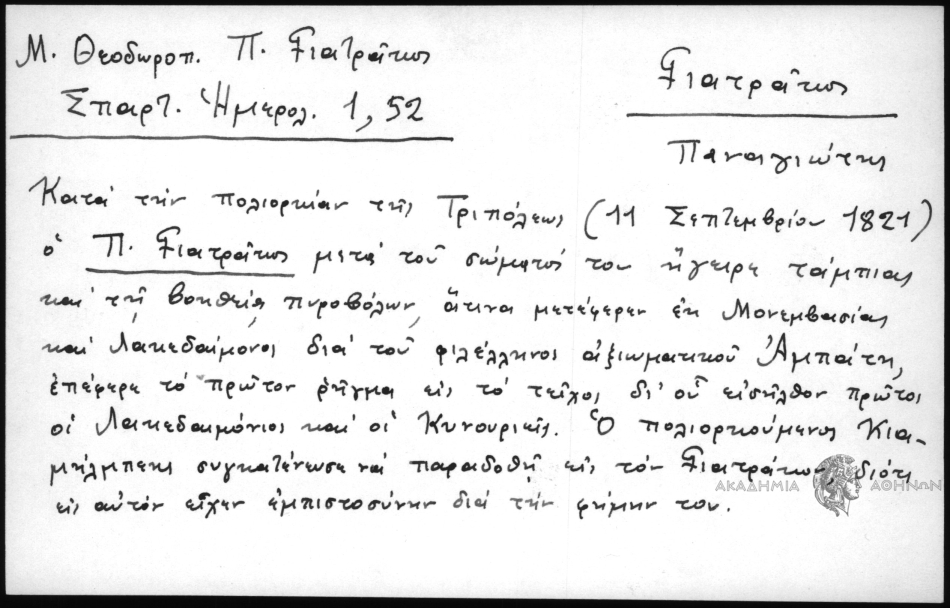 Μ. Θεοδωροπ. Π. Γιατρᾶκος
Σπαρτ. Ἡμερολ. 1, 52
Γιατρᾶκος
Παναγιώτης
Κατά τήν πολιορκίαν τῆς Τριπόλεως (11 Σεπτεμβρίου 1821)
ὁ Π. Γιατρᾶκος μετά τοῦ σώματός του ἤγειρε τάμπιας
καί τῇ βοηθείᾳ πυροβόλων, ἅτινα μετέφερεν ἐκ Μονεμβασίας
καί Λακεδαίμονος διά τοῦ φιλέλληνος ἀξιωματικοῦ Ἀμπάτη,
ἐπέφερε τό πρῶτον ρῆγμα εἰς τό τεῖχος, δι' οὗ εἰσῆλθον πρῶτοι
οἱ Λακεδαιμόνιοι καί οἱ Κυνουριεῖς. Ὁ πολιορκούμενος Κια-
μήλμπεης συγκατένευσε νά παραδοθῇ εἰς τόν Γιατρᾶκον, διότι
εἰς αὐτόν εἶχεν ἐμπιστοσύνην διά τήν φήμην του.
ΑΚΑΔΗΜΙΑ ΑΘΗΝΩΝ